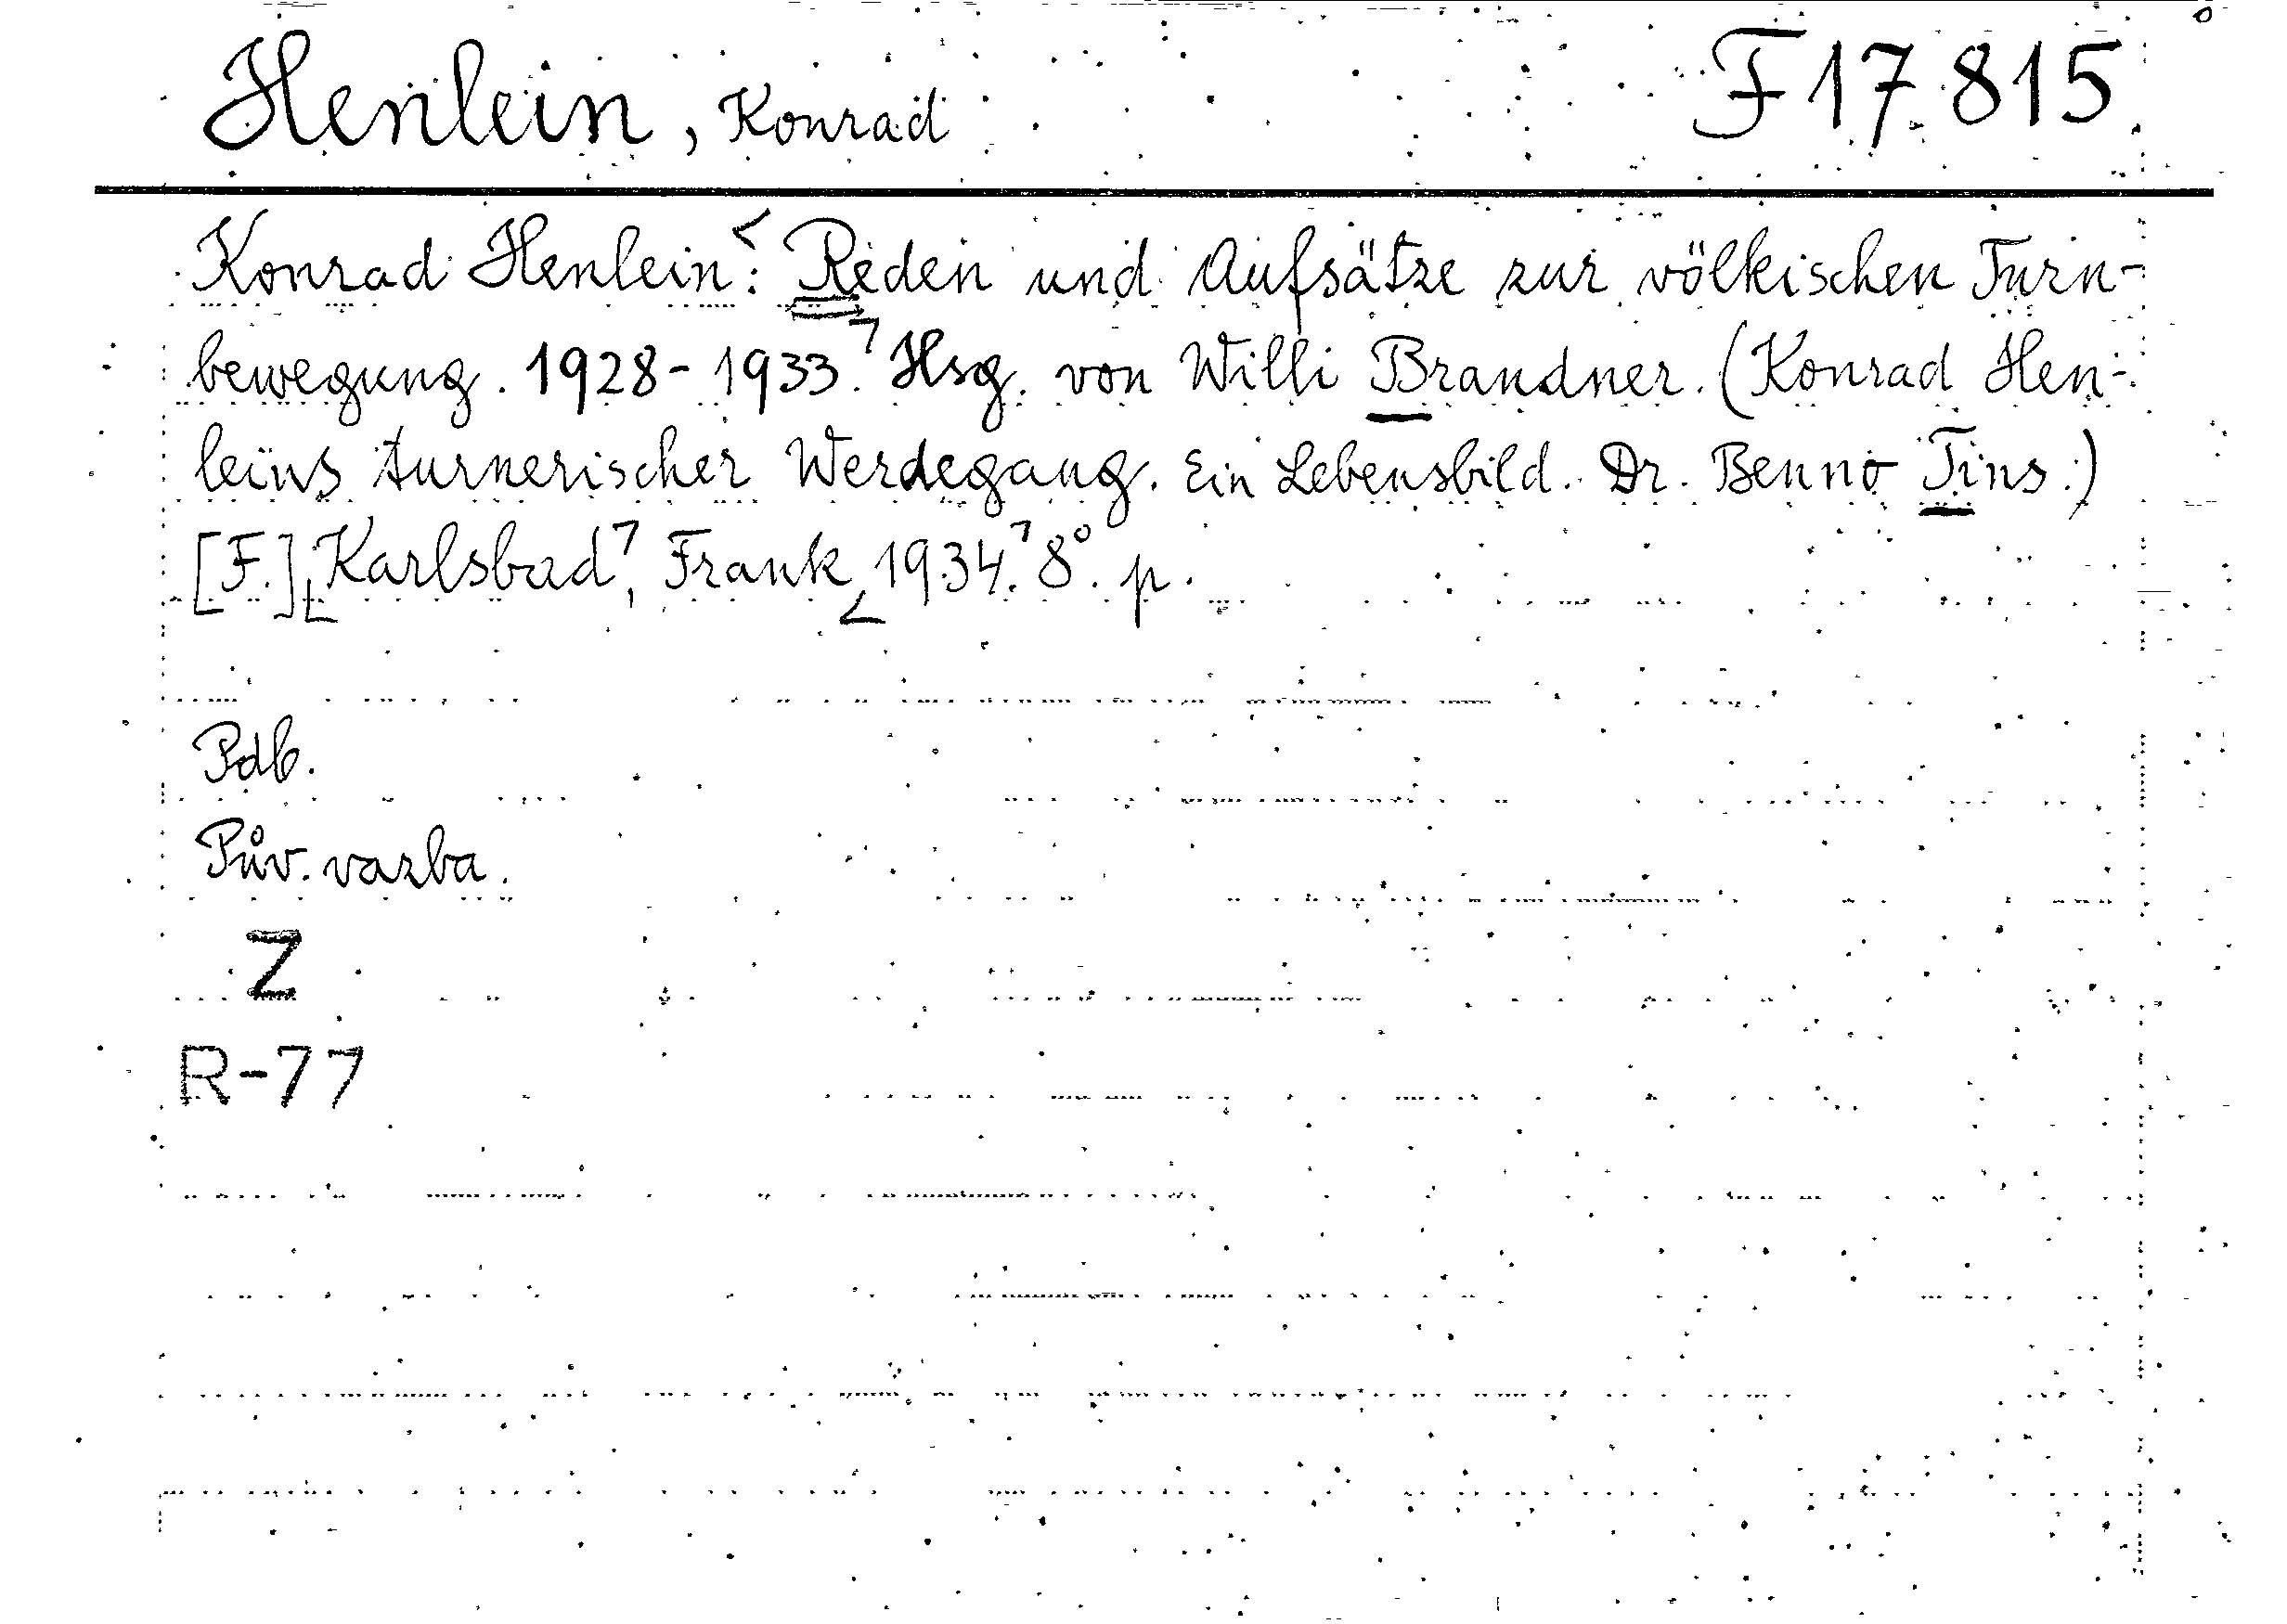 Henlein, Konrad F 17.815
Konrad Henlein: Reden und Aufsätze zur völkischen Turn-
bewegung. 1928-1933. Hsg. von Willi Brandner. (Konrad Hen-
leins turnerischer Werdegang. Ein Lebensbild. Dr. Benno Tins.)
[F.] Karlsbad, Frank 1934. 8°. p.
Pdb.
Pův. vazba.
Z
R-77